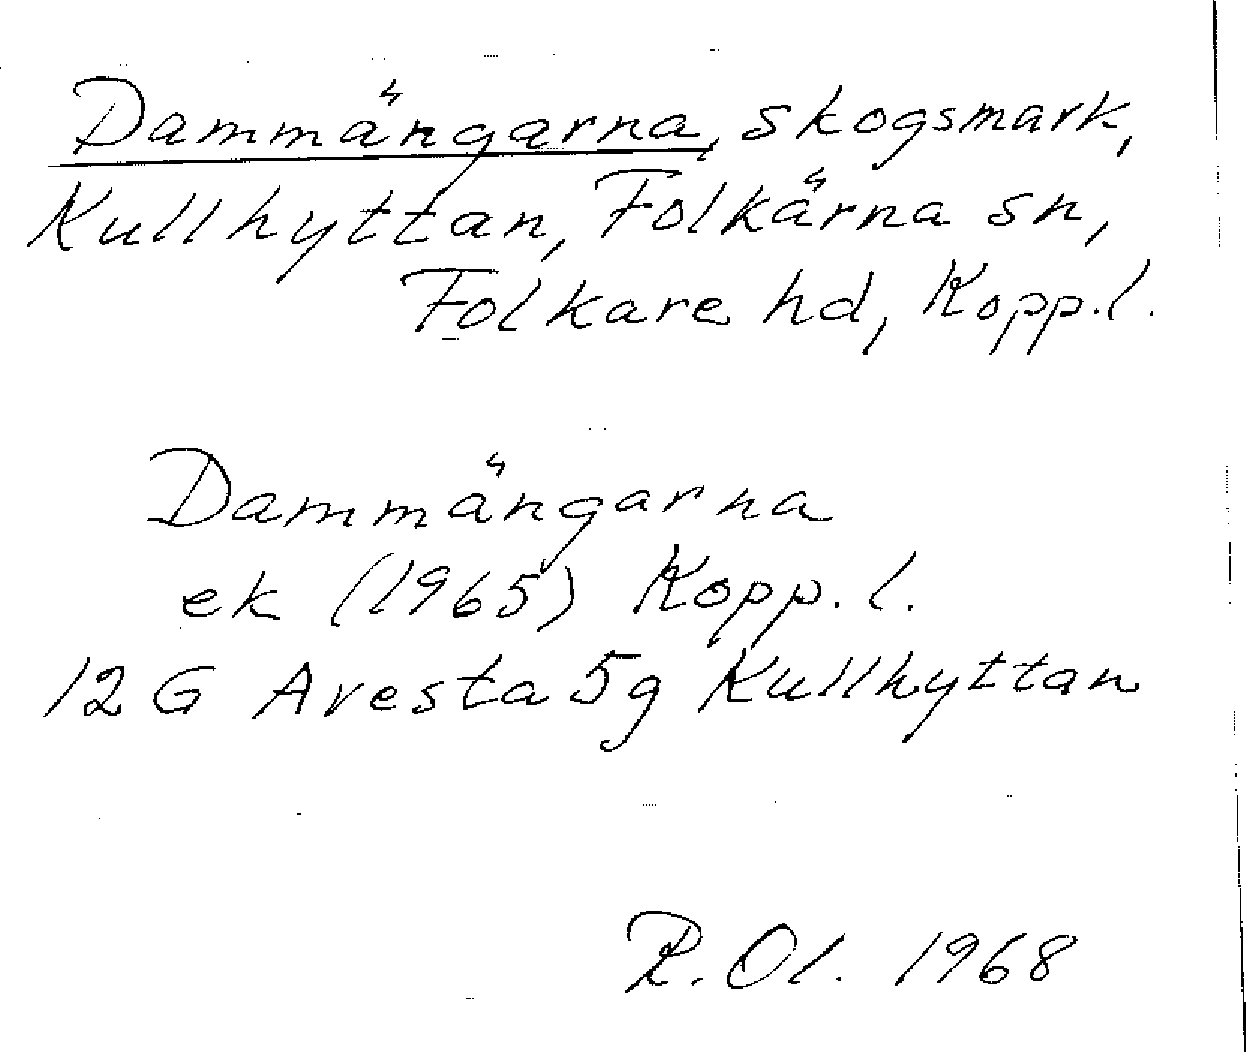 Dammängarna, skogsmark,
Kullhyttan, Folkärna sn,
Folkare hd, Kopp.l.
Dammängarna
ek (1965) Kopp.l.
12 G Avesta 5g Kullhyttan
R.Ol. 1968